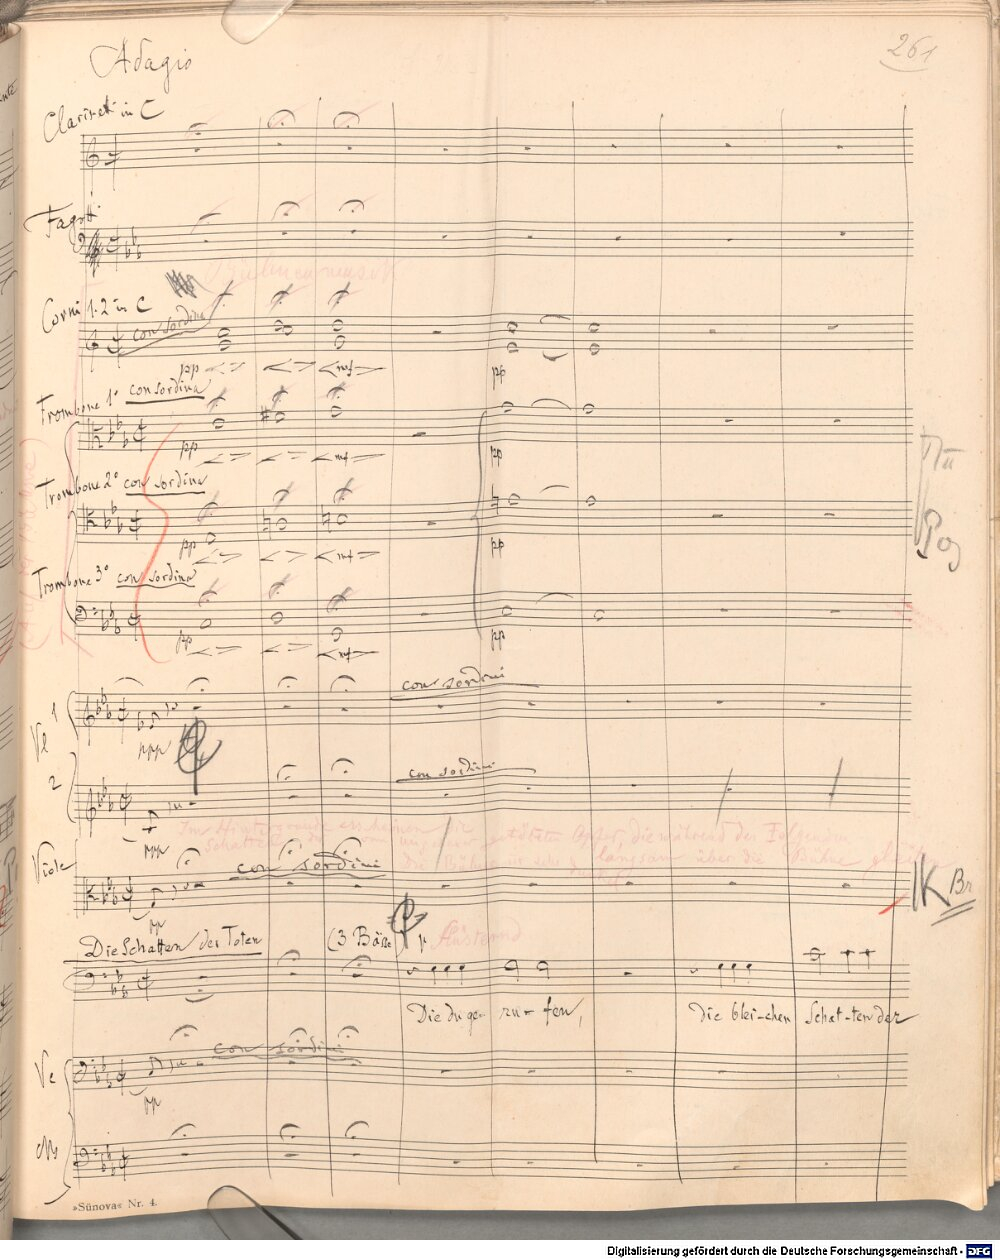 Adagio
261
Clarinetti in C
Fagotti
Corni 1.2 in C
con sordina
pp
mf
pp
Trombone 1° con sordina
pp
mf
pp
Trombone 2° con sordina
pp
mf
pp
Trombone 3° con sordina
pp
mf
pp
Pos
con sordini
Vl 1
ppp
2
con sordini
ppp
Im Hintergrunde erscheinen die
Schatten der getöteten Opfer, die während des Folgenden
die Bühne langsam über die Bühne gleiten
dunkel
Viole
con sordini
pp
K Br
Die Schatten der Toten
(3 Bäße
p
flüsternd
Die du ge- ru- fen,
die blei-chen Schat-ten der
con sordini
Vc
pp
»Sünova« Nr. 4.
Digitalisierung gefördert durch die Deutsche Forschungsgemeinschaft - DFG